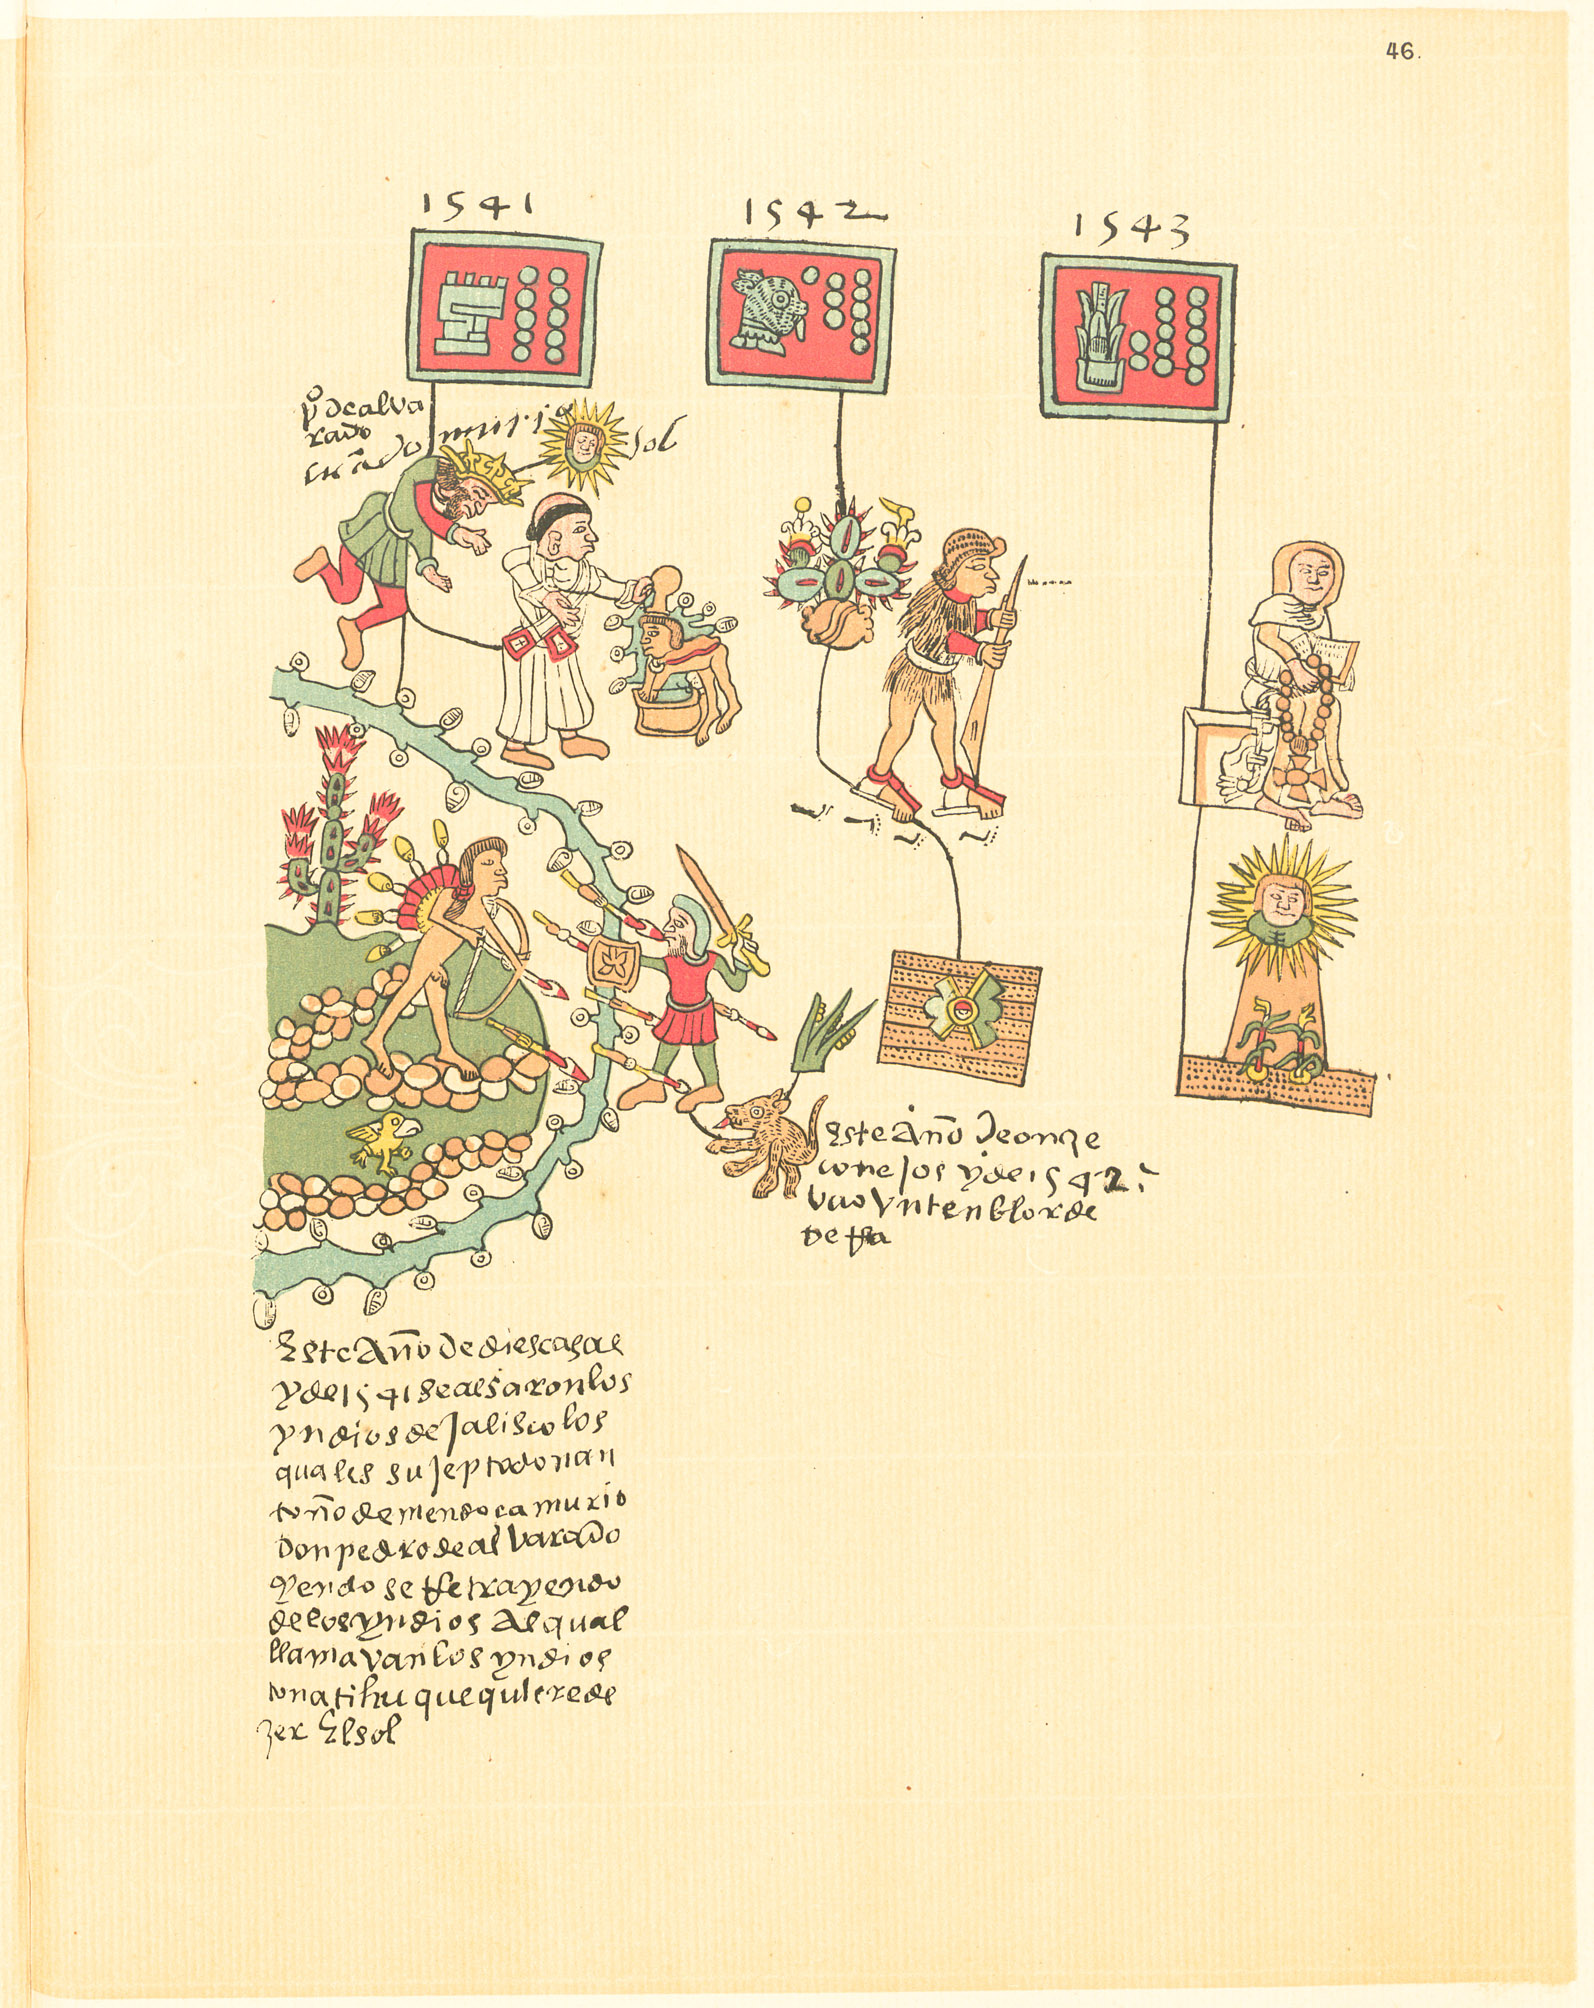 46.
1541
1542
1543
po de alva
rado
murio
sol
Este Año de onze
conejos y de 1542
uvo Un tenblor de
tetra
Este Año de diescasas
y de 1541 se alsaron los
yndios de Jalisco los
quales sujeto don an
toño de mendoca murio
Don pedro de al Varado
yendo se Retrayendo
de los yndios Al qual
llamavan los yndios
tonatihu que quiere de
zer El sol